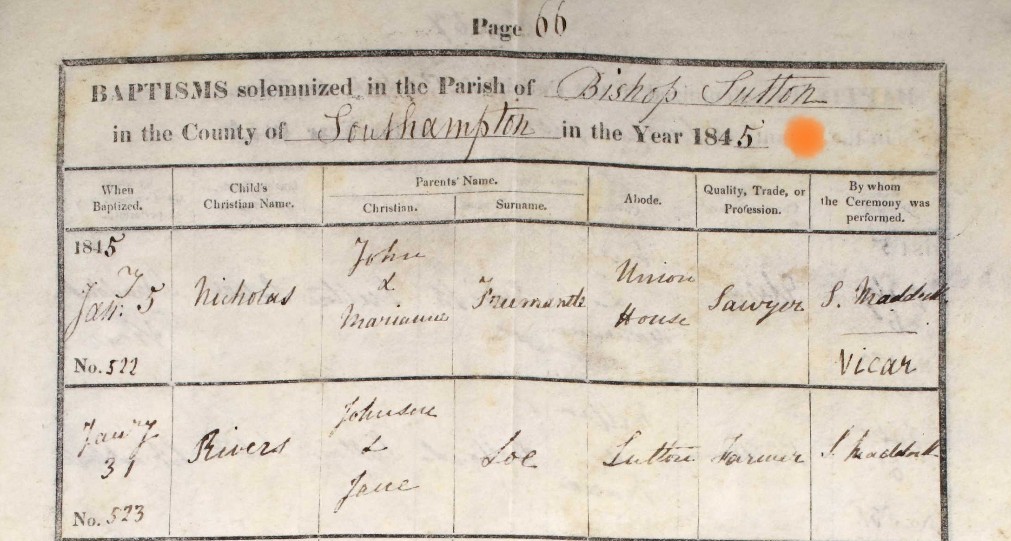 Page 66
BAPTISMS solemnized in the Parish of Bishop Sutton
in the County of Southampton in the Year 1845
When Baptized.
Child's Christian Name.
Parents' Name.
Christian.
Surname.
Abode.
Quality, Trade, or Profession.
By whom the Ceremony was performed.
1845
Jany. 5
No. 522
Nicholas
John
&
Marianne
Fremantle
Union
House
Sawyer
S. Maddock
Vicar
Jany
31
No. 523
Rivers
Johnson
&
Jane
Loe
Sutton
Farmer
S. Maddock